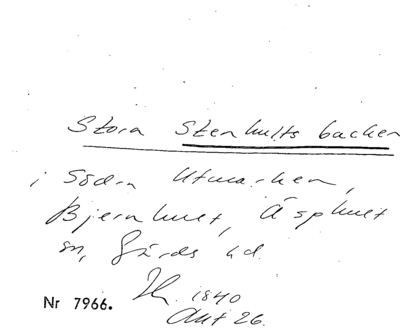 Stora Stenhults backen
i Södra Utmarken,
Bjernhult, Äsphult
sn, Gärds hd.
1840
Nr 7966. Akt 26.